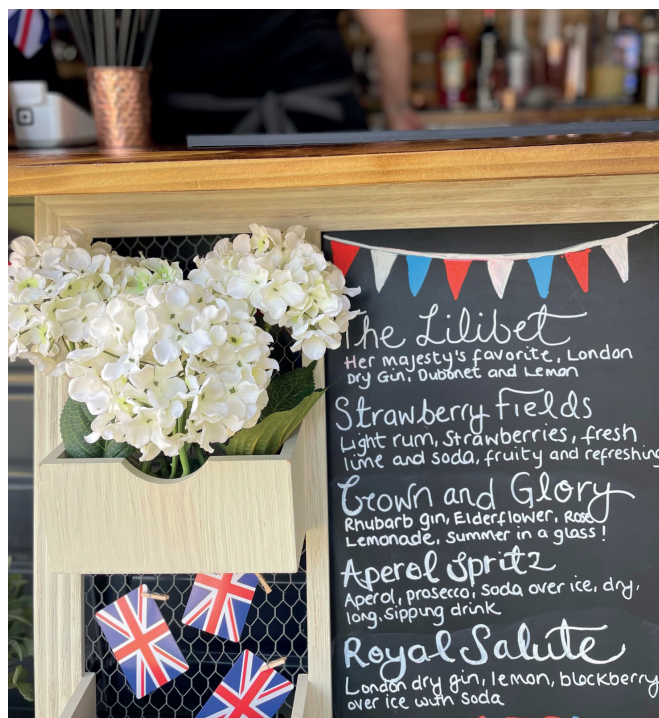 The Lilibet
Her majesty's favorite, London
Dry Gin, Dubonet and Lemon
Strawberry Fields
Light rum, strawberries, fresh
lime and soda, fruity and refreshing
Crown and Glory
Rhubarb gin, Elderflower, Rose
Lemonade, summer in a glass!
Aperol Spritz
Aperol, prosecco, soda over ice, dry,
long, sipping drink
Royal Salute
London dry gin, lemon, blackberry
over ice with soda